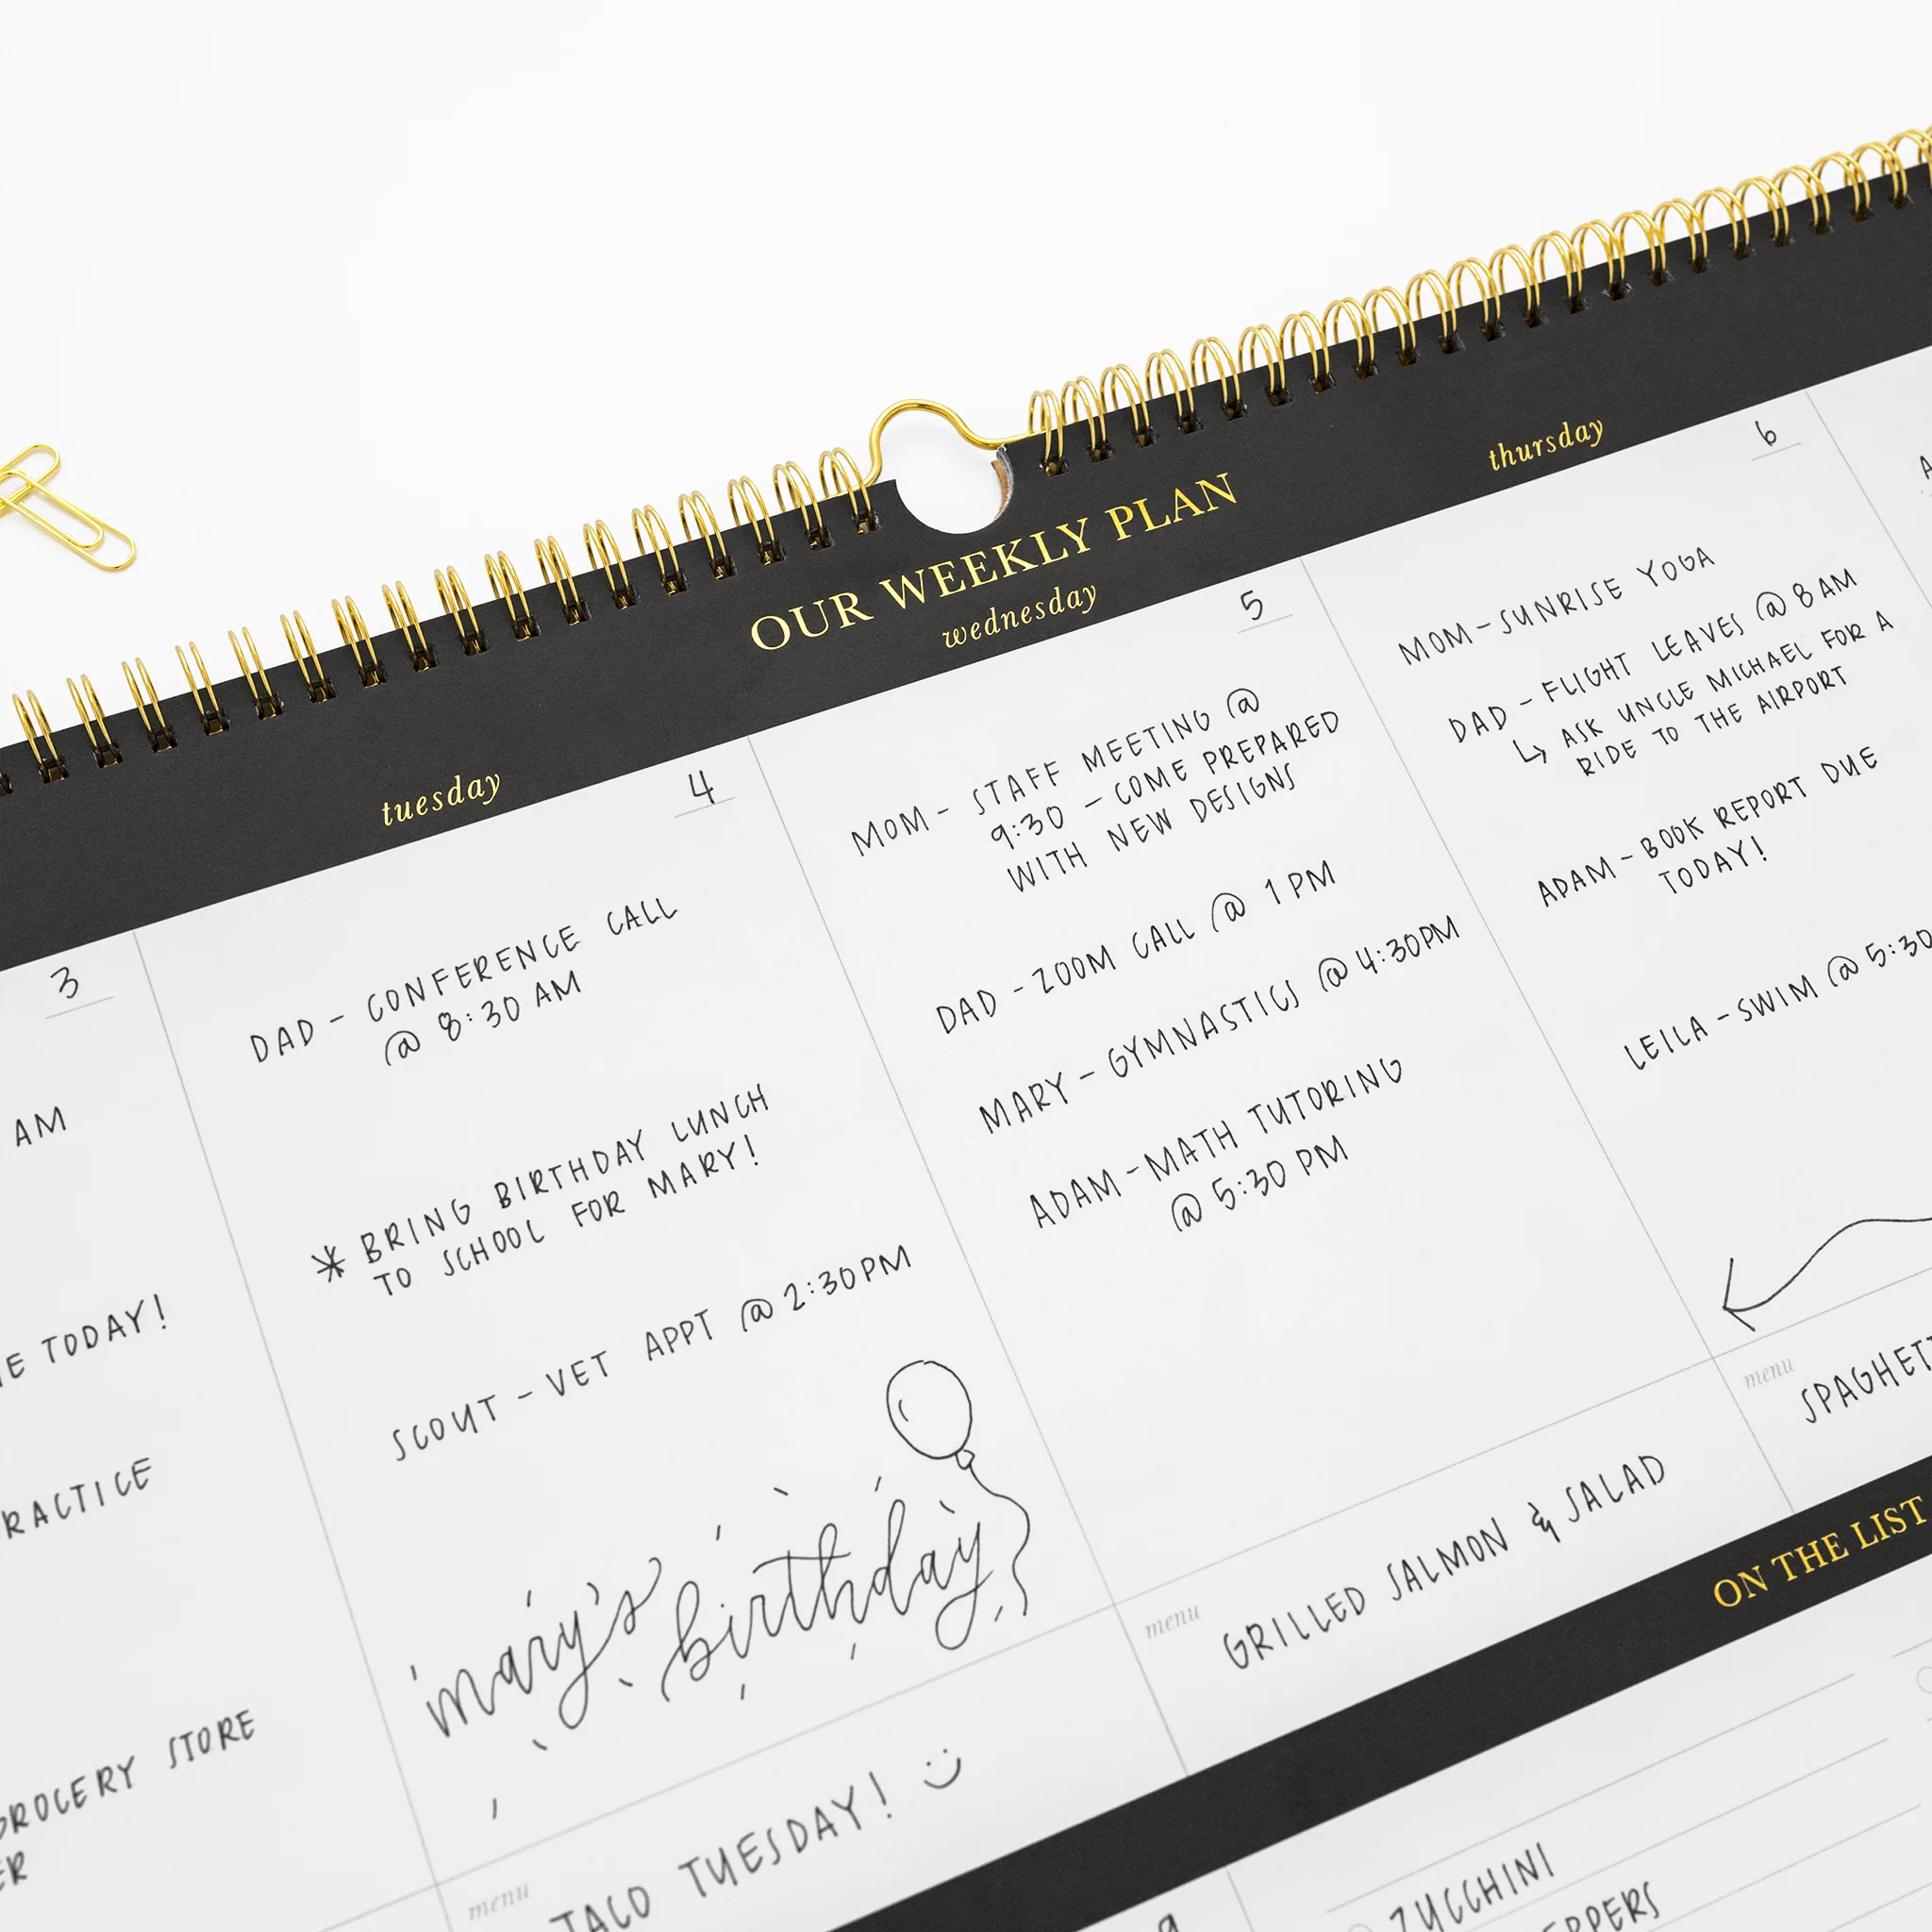 OUR WEEKLY PLAN
3
AM
TODAY!
GROCERY STORE
tuesday
4
DAD - CONFERENCE CALL
@ 8:30 AM
* BRING BIRTHDAY LUNCH
TO SCHOOL FOR MARY!
SCOUT - VET APPT @ 2:30PM
mary's birthday
menu
TACO TUESDAY! :)
wednesday
5
MOM - STAFF MEETING @
9:30 - COME PREPARED
WITH NEW DESIGNS
DAD - ZOOM CALL @ 1 PM
MARY - GYMNASTICS @ 4:30PM
ADAM - MATH TUTORING
@ 5:30 PM
menu
GRILLED SALMON & SALAD
thursday
6
MOM - SUNRISE YOGA
DAD - FLIGHT LEAVES @ 8 AM
↳ ASK UNCLE MICHAEL FOR A
RIDE TO THE AIRPORT
ADAM - BOOK REPORT DUE
TODAY!
LEILA - SWIM @ 5:30
menu
ON THE LIST
ZUCCHINI